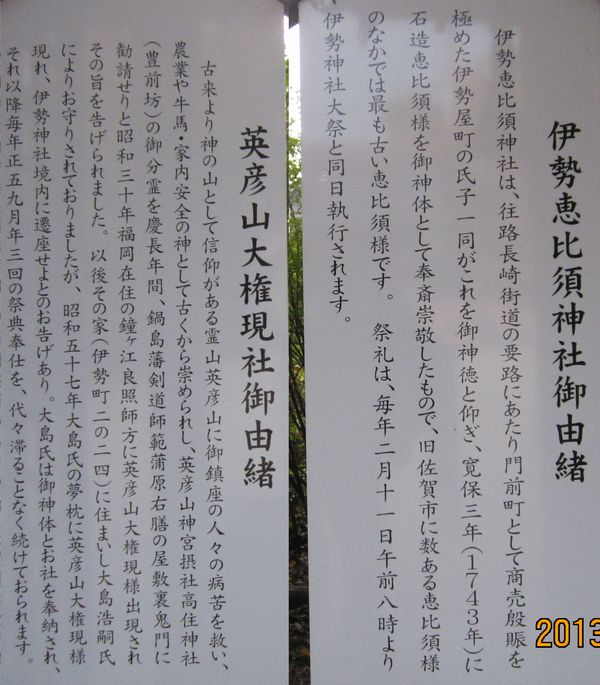 伊勢恵比須神社御由緒
伊勢恵比須神社は、往路長崎街道の要路にあたり門前町として商売殷賑を
極めた伊勢屋町の氏子一同がこれを御神徳と仰ぎ、寛保三年(1743年)に
石造恵比須様を御神体として奉斎崇敬したもので、旧佐賀市に数ある恵比須様
のなかでは最も古い恵比須様です。 祭礼は、毎年二月十一日午前八時より
伊勢神社大祭と同日執行されます。
英彦山大権現社御由緒
古来より神の山として信仰がある霊山英彦山に御鎮座の人々の病苦を救い、
農業や牛馬・家内安全の神として古くから崇められし、英彦山神宮摂社高住神社
(豊前坊)の御分霊を慶長年間、鍋島藩剣道師範蒲原右膳の屋敷裏鬼門に
勧請せりと昭和三十年福岡在住の鐘ヶ江良照師方に英彦山大権現様出現され
その旨を告げられました。 以後その家(伊勢町二の二四)に住まいし大島浩嗣氏
によりお守りされておりましたが、昭和五十七年大島氏の夢枕に英彦山大権現様
現れ、伊勢神社境内に遷座せよとのお告げあり。大島氏は御神体とお社を奉納され、
それ以降毎年正五九月年三回の祭典奉仕を、代々滞ることなく続けておられます。
2013